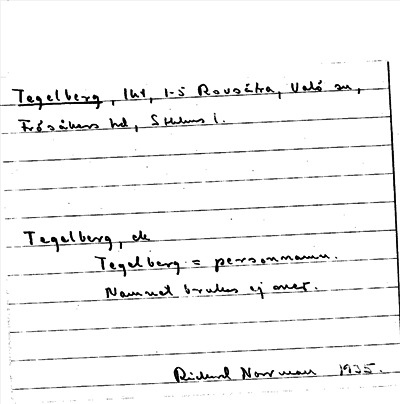 Tegelberg, lht, 1-5 Rovsätra, Valö sn,
Frösåkers hd, Sthlms l.
Tegelberg, ck
Tegelberg = personnamn.
Namnet brukas ej mer.
Rickard Norrman 1935.